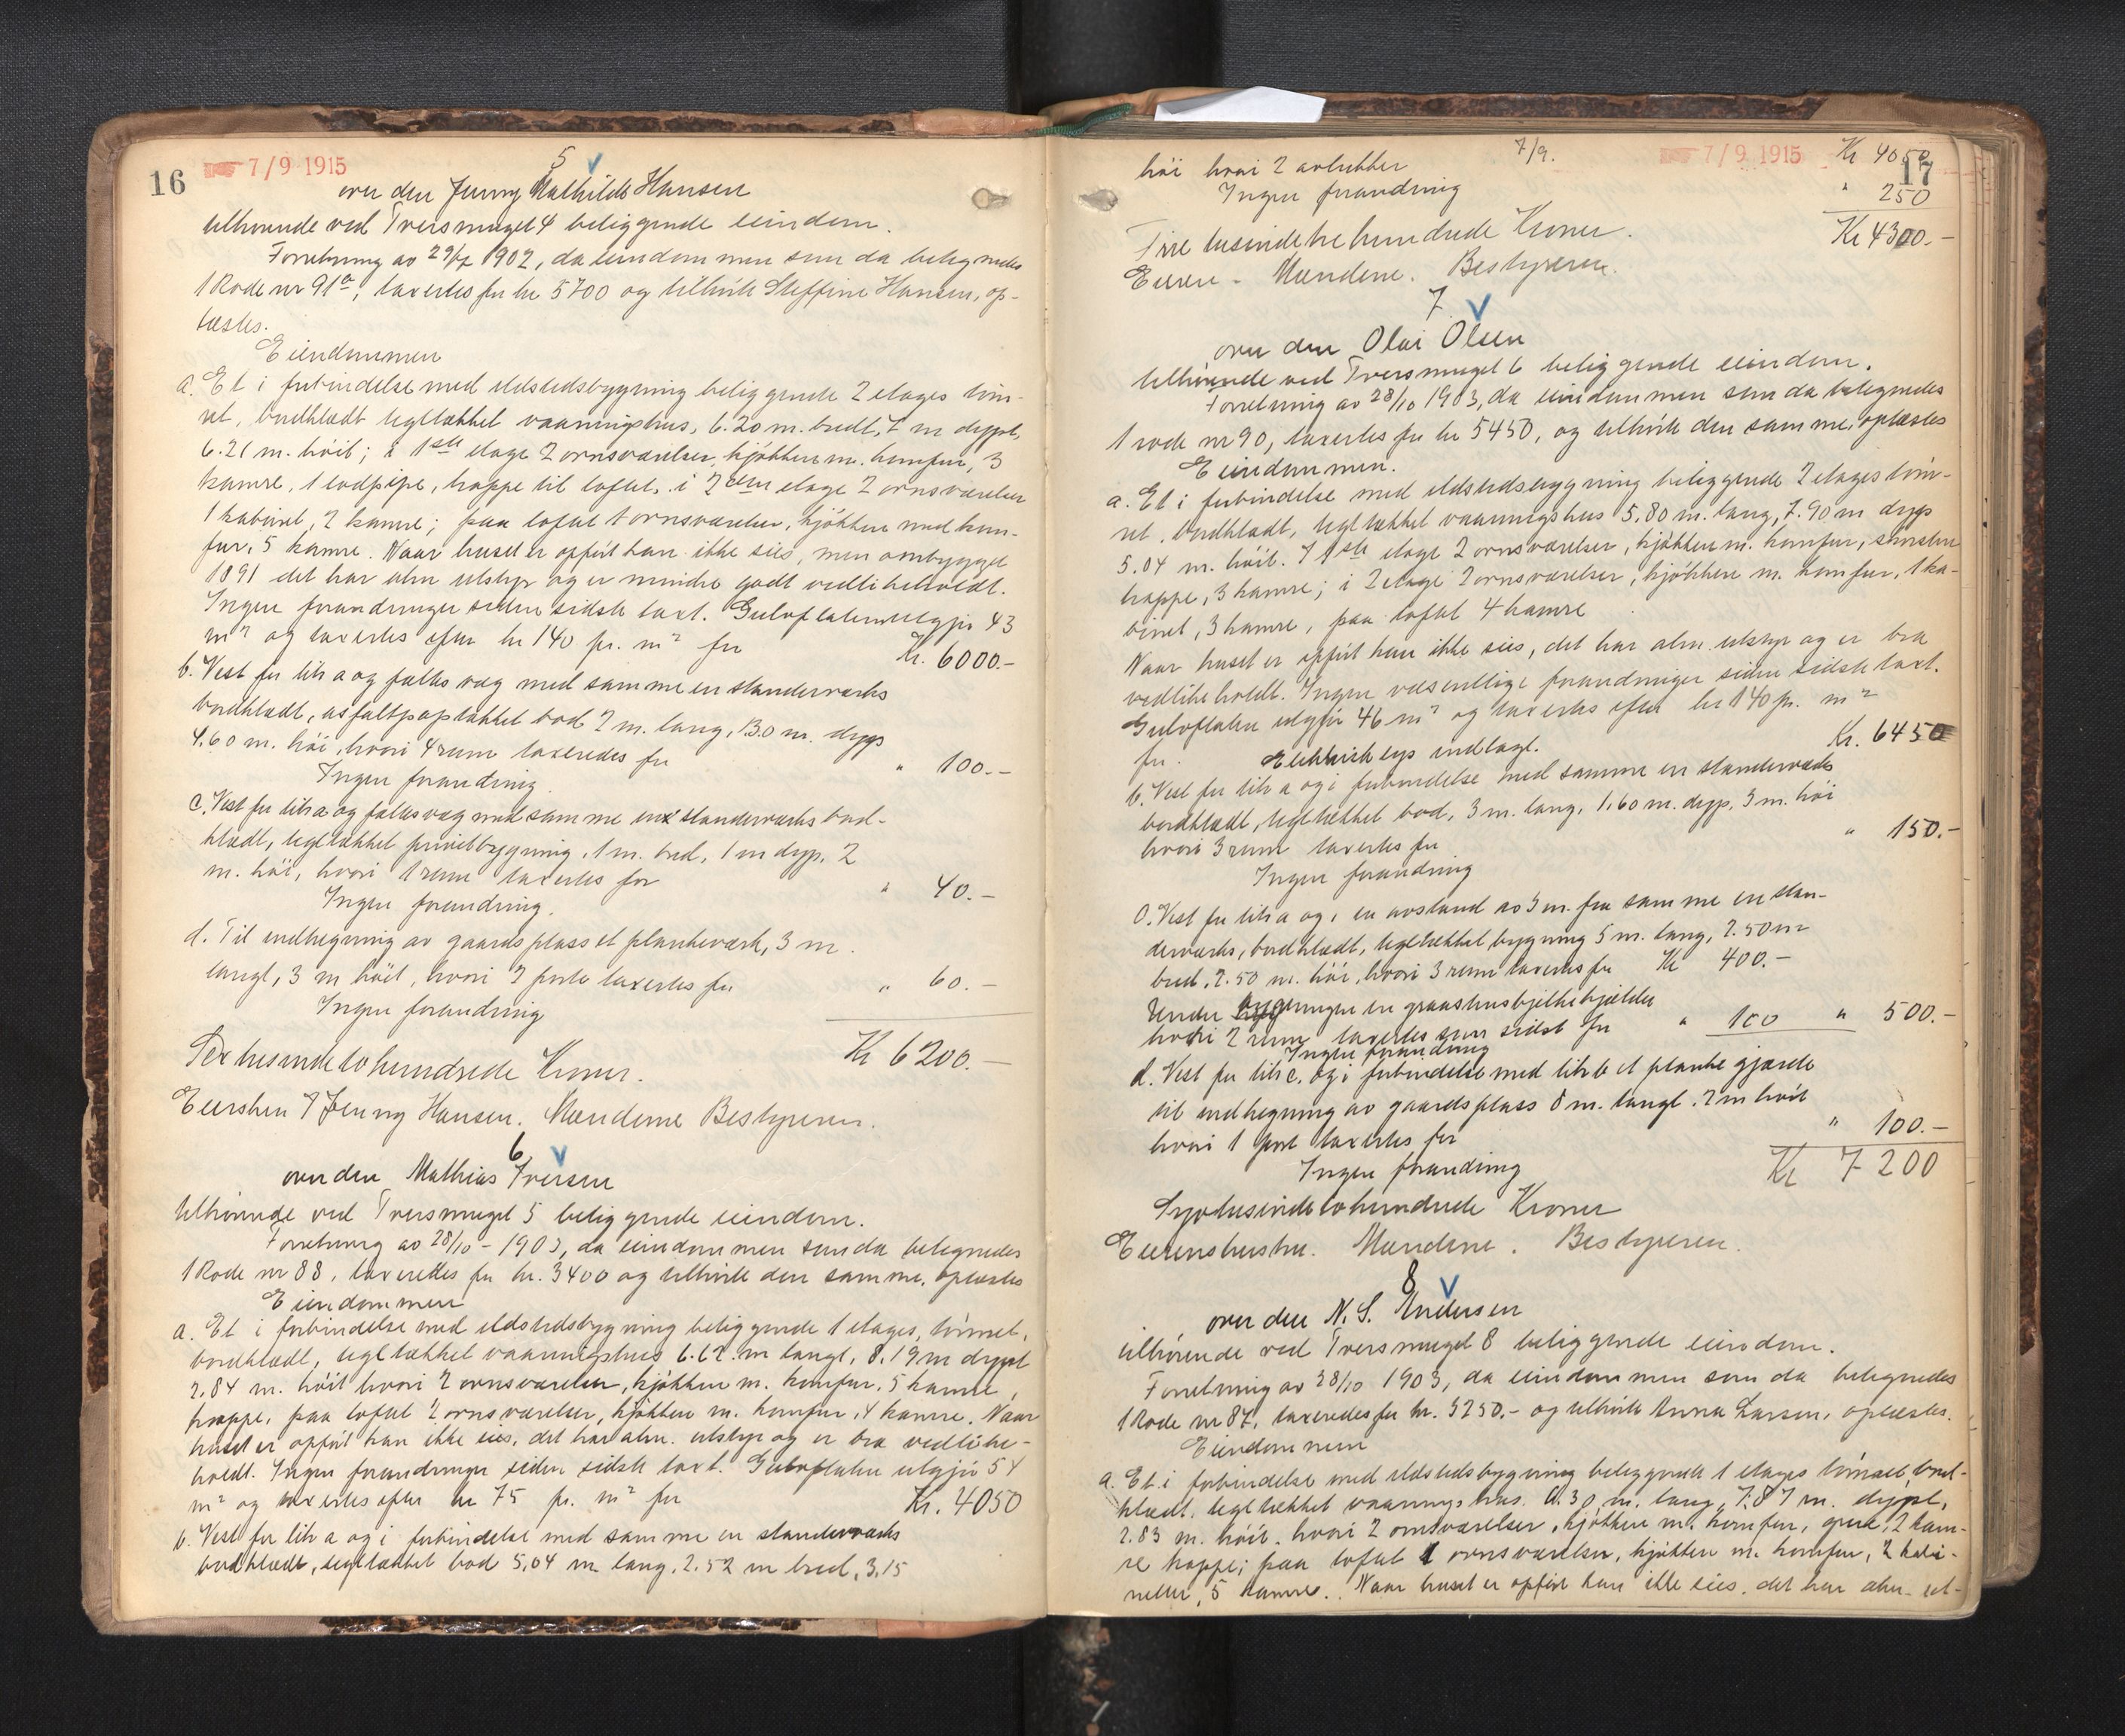 16
7/9 1915
5
over den Jenny Mathilde Hansen
tilhørende ved Tversmuget 4 beliggende eiendom.
Forretning av 29/7 1902, da eiendommen som da betegnedes
1 Rode nr 91a, taxertes for kr 5700 og tilhørte Steffine Hansen, op-
læstes.
Eiendommen
a. Et i forbindelse med ildstedsbygning beliggende 2 etages tøm-
ret, bordklædt tegltækket vaaningshus, 6.20 m. bredt, 7 m dypt,
6.21 m. höit; i 1ste etage 2 ovnsværelser, kjøkken m. komfur, 3
kamre, 1 lodpipe, trappe til loftet, i 2den etage 2 ovnsværelser
1 kabinet, 2 kamre; paa loftet 1 ovnsværelse, kjøkken med kom-
fur, 5 kamre. Naar huset er opført kan ikke sies, men ombygget
1891 det har alm utstyr og er mindre godt vedlikeholdt.
Ingen forandringer siden sidste taxt. Gulvflaten utgjør 43
m2 og taxertes efter kr 140 pr. m2 for Kr. 6000.-
b. Vest for litr a og fælles væg med samme en standerværks
bordklædt, asfaltpaptækket bod 2 m. lang, 1.30 m. dyp
4.60 m. höi, hvori 4 rum taxeredes for " 100.-
Ingen forandring.
c. Vest for litr a og fælles væg med samme en standerværks bord-
klædt, tegltækket privetbygning, 1 m. bred, 1 m dyp, 2
m. höi, hvori 1 rum taxertes for " 40.-
Ingen forandring.
d. Til indhegning av gaardsplass et plankeværk, 3 m.
langt, 3 m höit, hvori 2 porte taxertes for " 60.-
Ingen forandring
Kr 6200.-
Sex tusinde to hundrede Kroner.
Eiersken Jenny Hansen. Mændene Bestyreren.
6
over den Mathias Iversen
tilhørende ved Tversmuget 5 beliggende eiendom.
Forretning av 28/10 - 1903, da eiendommen som da betegnedes
1 Rode nr 88, taxeredes for kr. 3400 og tilhørte den samme, oplæstes
Eiendommen
a. Et i forbindelse med ildstedsbygning beliggende 1 etages, tømret,
bordklædt, tegltækket vaaningshus 6.62 m langt, 8.19 m dypt
2.84 m. höit hvori 2 ovnsværelser, kjøkken m. komfur, 5 kamre,
trappe, paa loftet 2 ovnsværelser, kjøkken m. komfur, 4 kamre. Naar
huset er opført kan ikke sies, det har alm. utstyr og er bra vedlike-
holdt. Ingen forandringer siden sidste taxt. Gulvflaten utgjør 54
m2 og taxertes efter kr 75 pr. m2 for Kr. 4050
b. Vest for litr a og i forbindelse med samme en standerværks
bordklædt, tegltækket bod 5,04 m lang, 2.52 m bred, 3,15
7/9.
7/9 1915
17
Kr 4050
höi hvori 2 avlukker
Ingen forandring " 250
Kr 4300.-
Fire tusinde tre hundrede Kroner.
Eieren - Mændene. Bestyreren.
7
over den Olai Olsen
tilhørende ved Tversmuget 6 beliggende eiendom.
Forretning av 28/10 1903, da eiendommen som da betegnedes
1 rode nr 90, taxertes for kr 5450, og tilhørte den samme, oplæstes
Eiendommen.
a. Et i forbindelse med ildstedsbygning beliggende 2 etages tøm-
ret, bordklædt, tegltækket vaaningshus 5.80 m. lang, 7.90 m dyp
5.04 m. höit. I 1ste etage 2 ovnsværelser, kjøkken m. komfur,
trappe, 3 kamre; i 2 etage 2 ovnsværelser, kjøkken m. komfur, 1 ka-
binet, 3 kamre, paa loftet 4 kamre
Naar huset er opført kan ikke sies, det har alm. utstyr og er bra
vedlikeholdt. Ingen væsentlige forandringer siden sidste taxt.
Gulvflaten utgjør 46 m2 og taxertes efter kr 140 pr. m2
for. Elektrisk lys indlagt. Kr. 6450
b. Vest for litr a og i forbindelse med samme en standerværks
bordklædt, tegltækket bod, 3 m. lang, 1.60 m. dyp, 3 m. höi
hvori 3 rum taxertes for " 150.-
Ingen forandring
c. Vest for litr a og i en avstand av 3 m. fra samme en stan-
derværks, bordklædt, tegltækket bygning 5 m. lang, 2.50 m
bred, 2.50 m. höi, hvori 3 rum taxertes for Kr 400.-
Under bygningen en graastensbjelkekjælder
hvori 2 rum taxertes som sidst for " 100 " 500.-
Ingen forandring
d. Vest for litr c. og i forbindelse med litr b et planke gjærde
til indhegning av gaardsplass 8 m. langt. 2 m höit
hvori 1 port taxertes for " 100.-
Ingen forandring
Kr 7200
Syv tusinde to hundrede Kroner
Eierens hustru. Mændene. Bestyreren.
8
over den N. S. Andersen
tilhørende ved Tversmuget 8 beliggende eiendom.
Forretning av 28/10 1903, da eiendommen som da betegnedes
1 Rode nr 87, taxeredes for kr. 3250.- og tilhørte Anna Larsen, oplæstes.
Eiendommen
a. Et i forbindelse med ildstedsbygning beliggende 1 etages tømret, bord-
klædt, tegltækket vaaningshus. 6.30 m. lang, 7.87 m. dypt,
2.83 m. höit, hvori 2 ovnsværelser, kjøkken m. komfur, grue, 2 kam-
re trappe; paa loftet 1 ovnsværelse, kjøkken m. komfur, 2 kabi-
netter, 5 kamre. Naar huset er opført kan ikke sies, det har alm. ut-